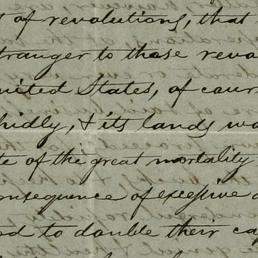 t of revolutions, that
tranger to those revo
nited States, of cour
pidly, & its lands wo
te of the great mortality
onsequence of excessive
ed to double their ca